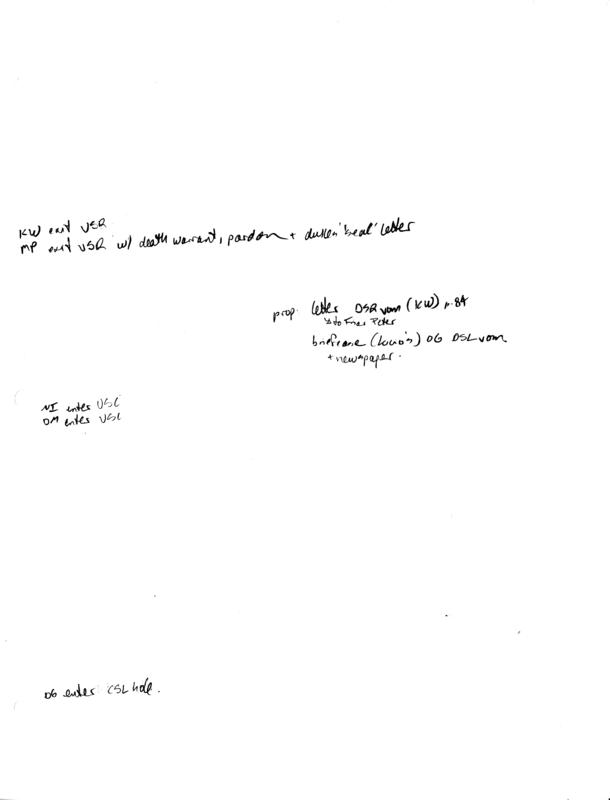 KW exit USR
MP exit USR w/ death warrant, pardon + 'seal' letter
prop. letter DSR vom (KW) p. 84
↳ to Friar Peter
briefcase (Lucio's) DG DSL vom
+ newspaper.
NI enter USL
DM enter USL
DG enter CSL hole.